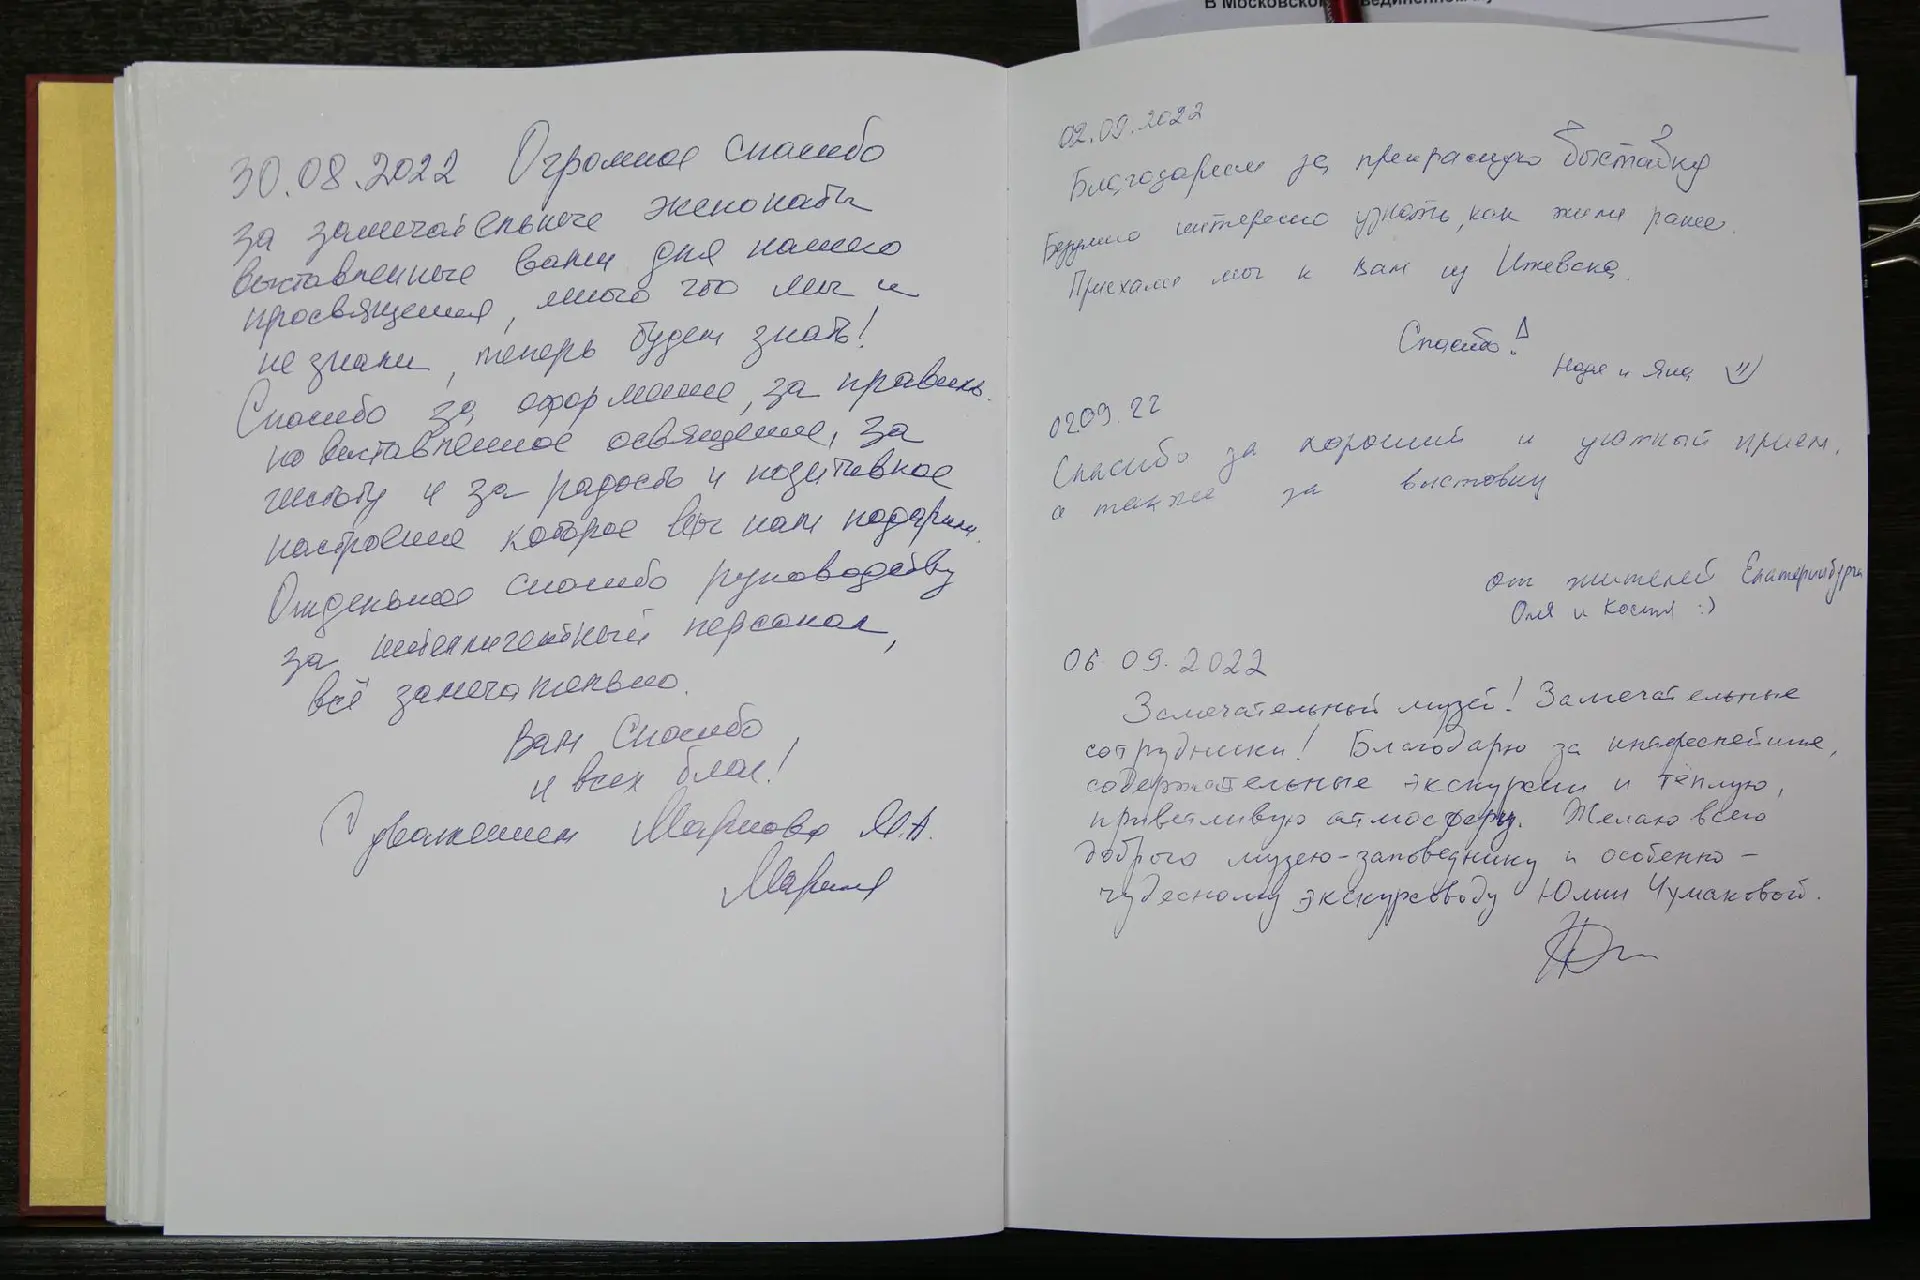 В Московско
30.08.2022 Огромное спасибо
за замечательные экспонаты
выставленные вами для нашего
просвящения, много что мы и
не знали, теперь будем знать!
Спасибо за оформление, за правиль-
но выставленное освящение, за
чистоту и за радость и позитивное
настроение которое вы нам подарили.
Отдельное спасибо руководству
за интеллигентный персонал,
всё замечательно.
Вам Спасибо,
и всех благ!
С уважением М.А.
02.09.2022
Благодарим за прекрасную выставку
Безумно интересно узнать, как жили ранее.
Приехали мы к вам из Ижевска.
Спасибо!
и Яна
0209.22
Спасибо за хороший и уютный прием,
а также за выставку
от жителей Екатеринбурга
Оля и Костя :)
06 09.2022
Замечательный музей! Замечательные
сотрудники! Благодарю за интереснейшие,
содержательные экскурсии и тёплую,
приветливую атмосферу. Желаю всего
доброго музею-заповеднику и особенно -
чудесному экскурсоводу Юлии Чумаковой.